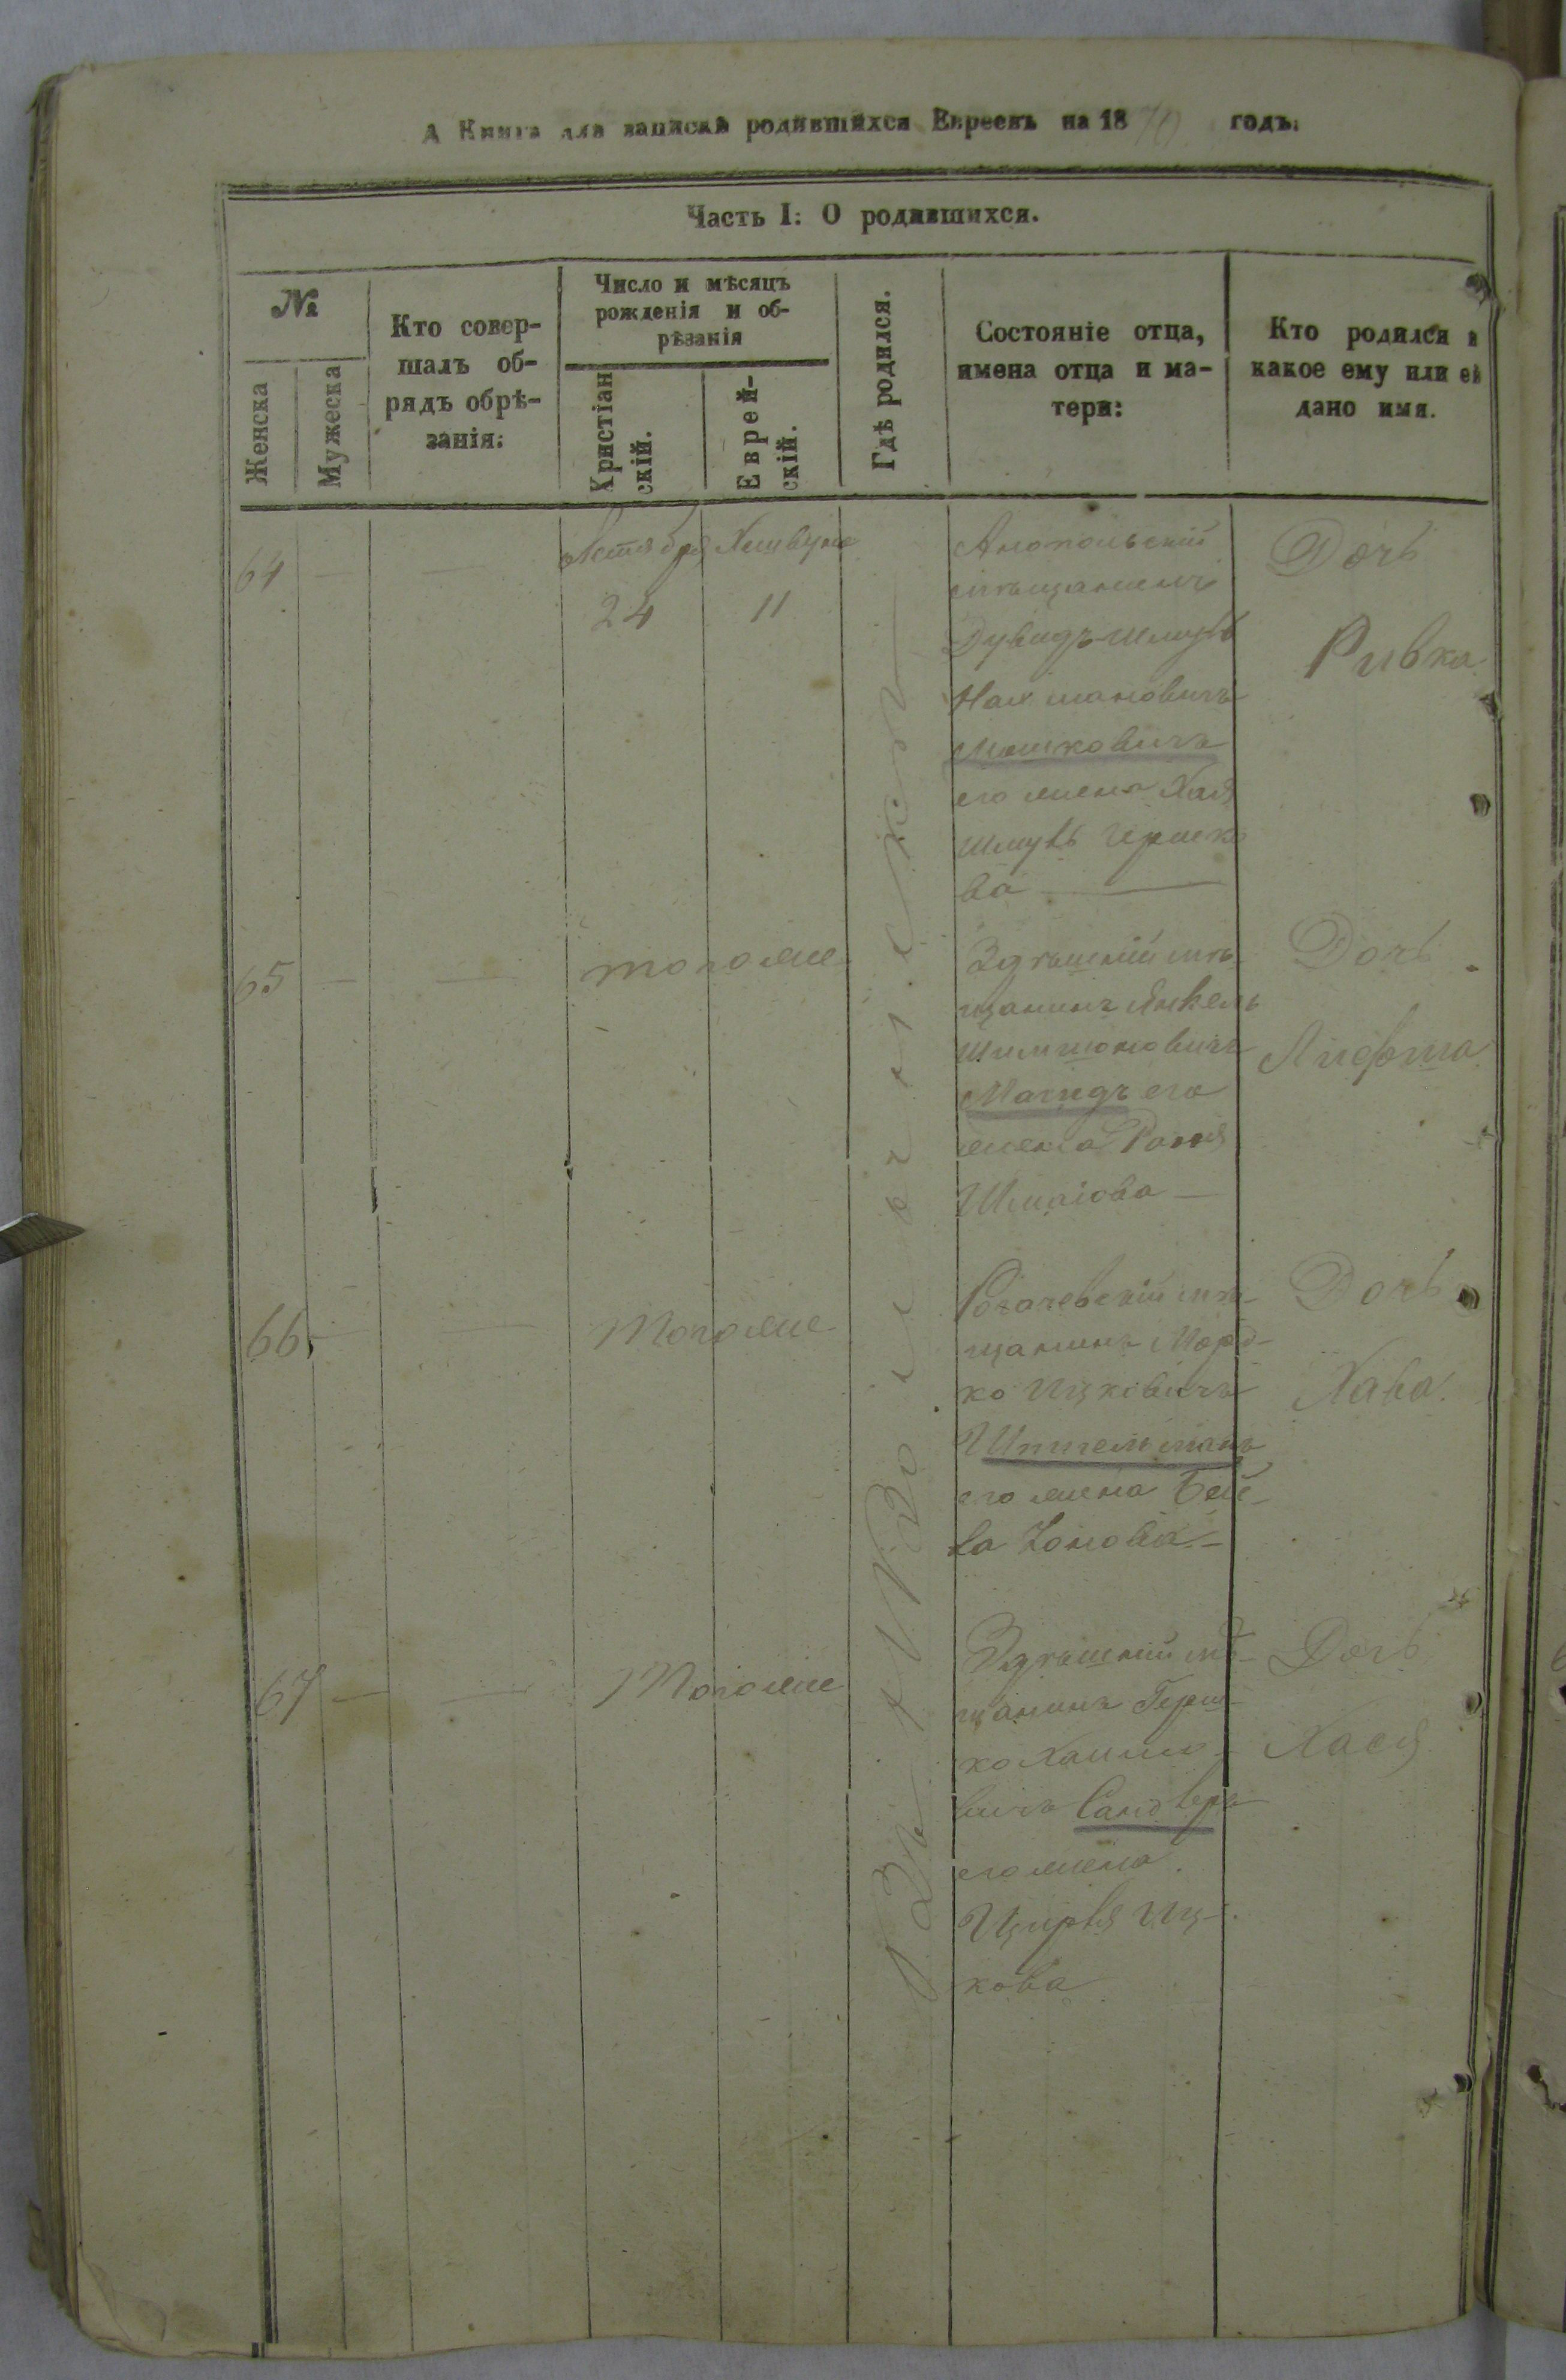 А Книга для записки родившихся Евреевъ на 1870 годъ.
Часть I: О родившихся.
№
Женска
Мужеска
Кто совер-
шалъ об-
рядъ обрѣ-
занія:
Число и мѣсяцъ
рожденія и об-
рѣзанія
Христіан
скій.
Еврей-
скій.
Гдѣ родился.
Состояніе отца,
имена отца и ма-
тери:
Кто родился и
какое ему или ей
дано имя.
64 — — Октября
24 11
Анопольскій
мѣщанинъ
Дувидъ-Шмуль
Нахмановичъ
Мошковичъ
его жена Хая
Шмуль Гершко
ва —
Дочь
Ривка
65 — — тогоже
Здѣшній мѣ
щанинъ Янкель
Шимшоновичъ
Магидъ его
жена
Шмаіова —
Дочь
66 — — Тогоже
Рогачевскій мѣ-
щанинъ Морд-
ко Ицковичъ
его жена Бей-
ла
Дочь
Хава.
67 — — Тогоже
Здѣшній мѣ-
щанинъ Герш-
ко Хаимо-
вичъ Сандлеръ
его жена
Ципра Иц-
кова
Дочь
Хася